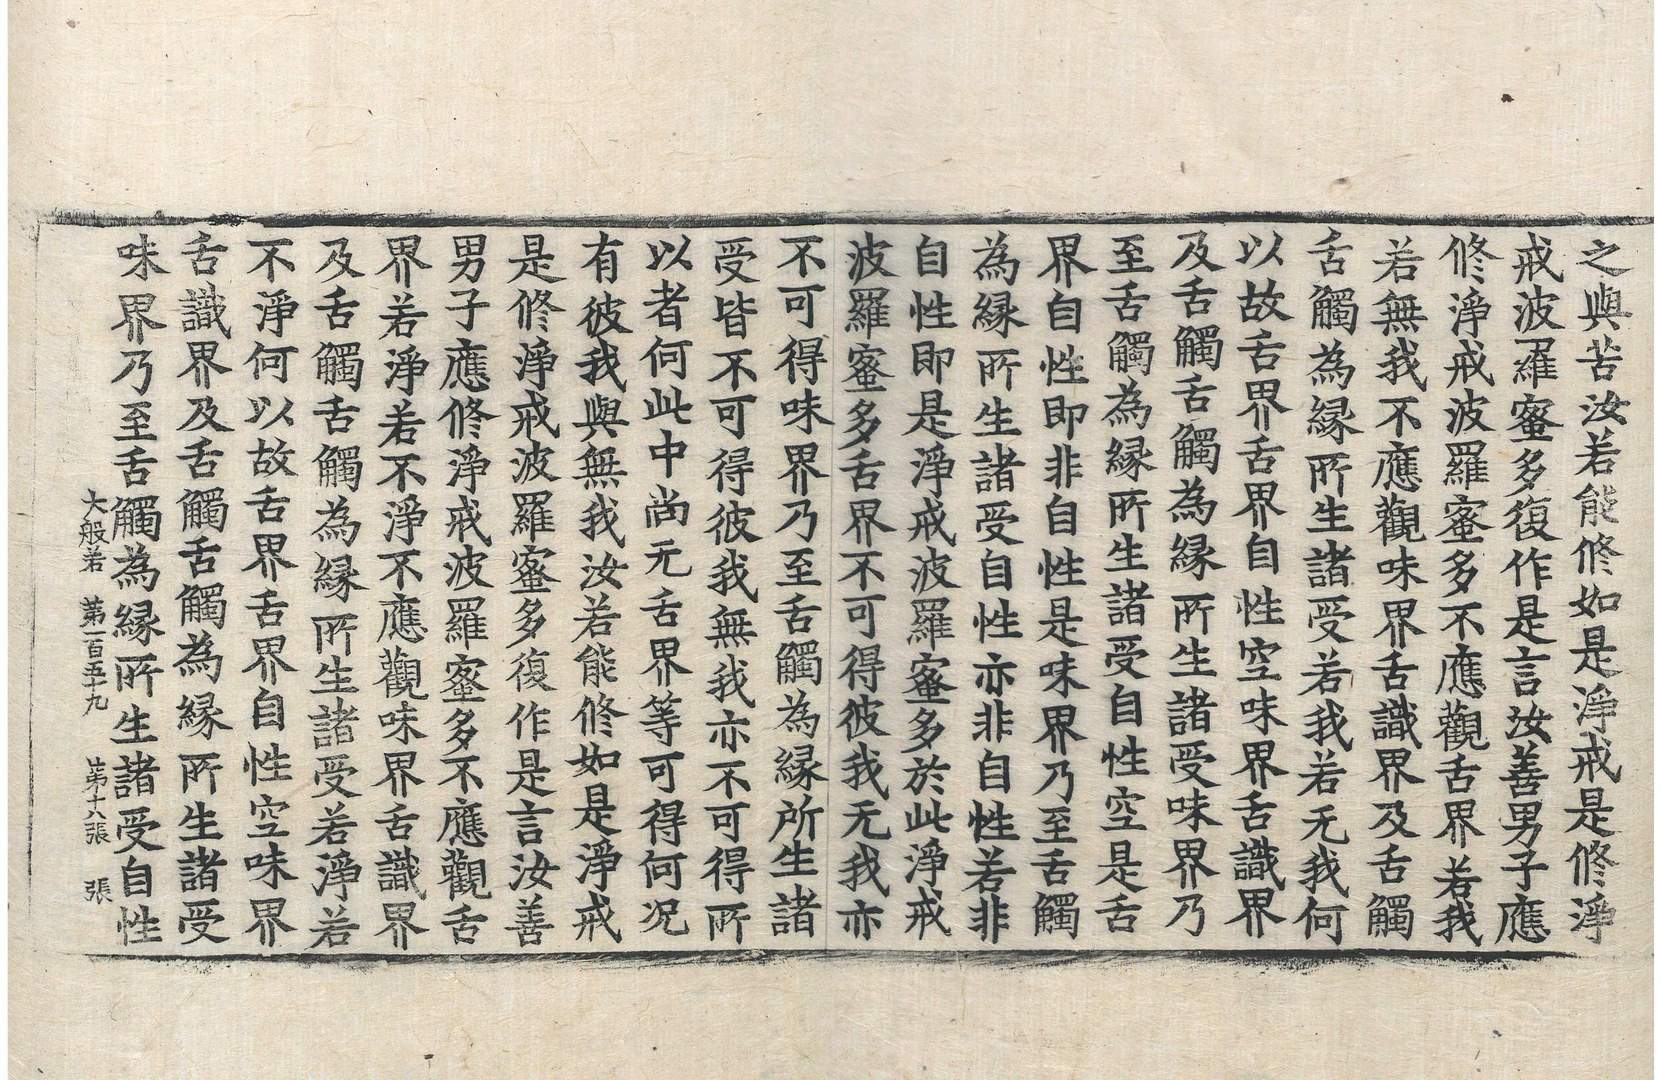 之與苦汝若能修如是淨戒是修淨
戒波羅蜜多復作是言汝善男子應
修淨戒波羅蜜多不應觀舌界若我
若無我不應觀味界舌識界及舌觸
舌觸為縁所生諸受若我若无我何
以故舌界舌界自性空味界舌識界
及舌觸舌觸為縁所生諸受味界乃
至舌觸為縁所生諸受自性空是舌
界自性即非自性是味界乃至舌觸
為縁所生諸受自性亦非自性若非
自性即是淨戒波羅蜜多於此淨戒
波羅蜜多舌界不可得彼我无我亦
不可得味界乃至舌觸為縁所生諸
受皆不可得彼我無我亦不可得所
以者何此中尚无舌界等可得何况
有彼我與無我汝若能修如是淨戒
是修淨戒波羅蜜多復作是言汝善
男子應修淨戒波羅蜜多不應觀舌
界若淨若不淨不應觀味界舌識界
及舌觸舌觸為縁所生諸受若淨若
不淨何以故舌界舌界自性空味界
舌識界及舌觸舌觸為縁所生諸受
味界乃至舌觸為縁所生諸受自性
大般若 第一百五十九 第十六張 張